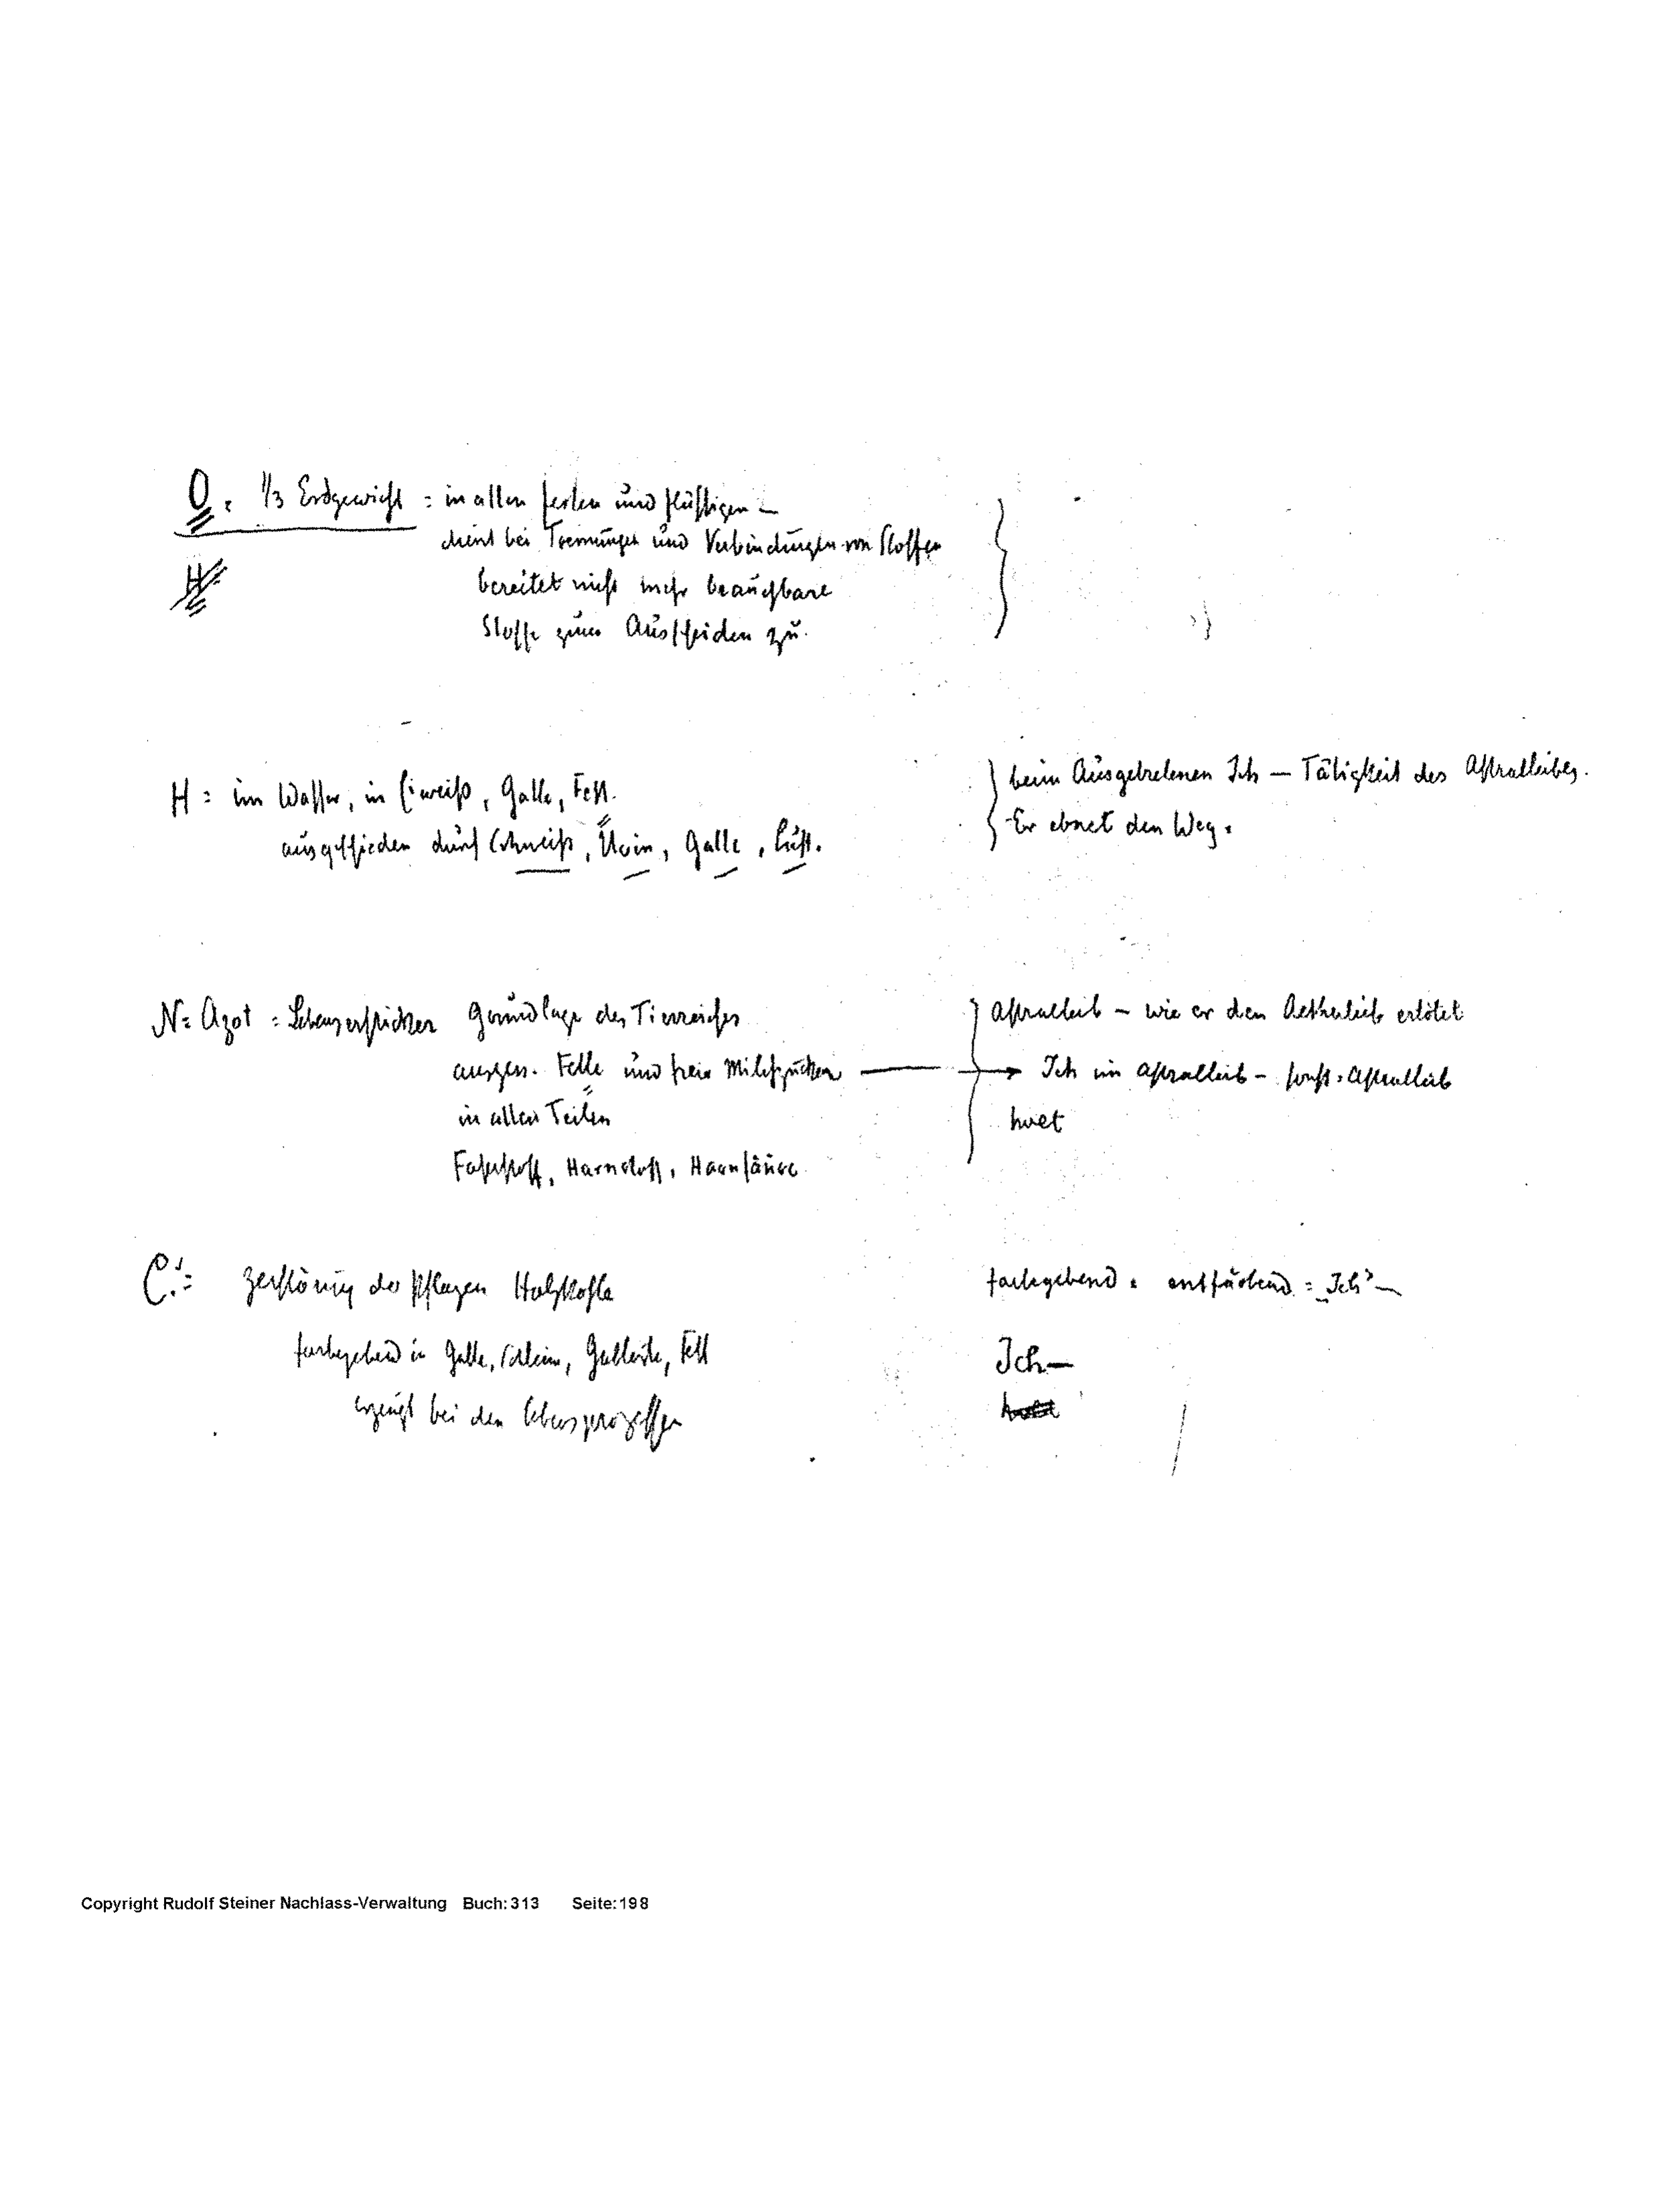 O = 1/3 Erdgewicht = in allen festen und flüssigen –
dient bei Trennungen und Verbindungen von Stoffen
H
bereitet nicht mehr brauchbare
Stoffe zum Ausscheiden zu.
H = im Wasser, in Eiweiß, Galle, Fett.
ausgeschieden durch Schweiß, Urin, Galle, Luft.
beim Ausgetretenen Ich – Tätigkeit des Astralleibes.
Er ebnet den Weg.
N = Azot = Lebensersticker Grundlage des Tierreiches
ausgen. Fette und freie Milchzucker
in allen Teilen
Faserstoff, Harnstoff, Harnsäure
Astralleib – wie er den Aetherleib ertötet
Ich im Astralleib – sonst: Astralleib
C. = Zerstörung der Pflanzen Holzkohle
farbgebend in Galle, Schleim, Gallerte, Fett
erzeugt bei den Lebensprozessen
farbegebend = entfärbend = "Ich" –
Ich –
Copyright Rudolf Steiner Nachlass-Verwaltung Buch: 313 Seite: 198